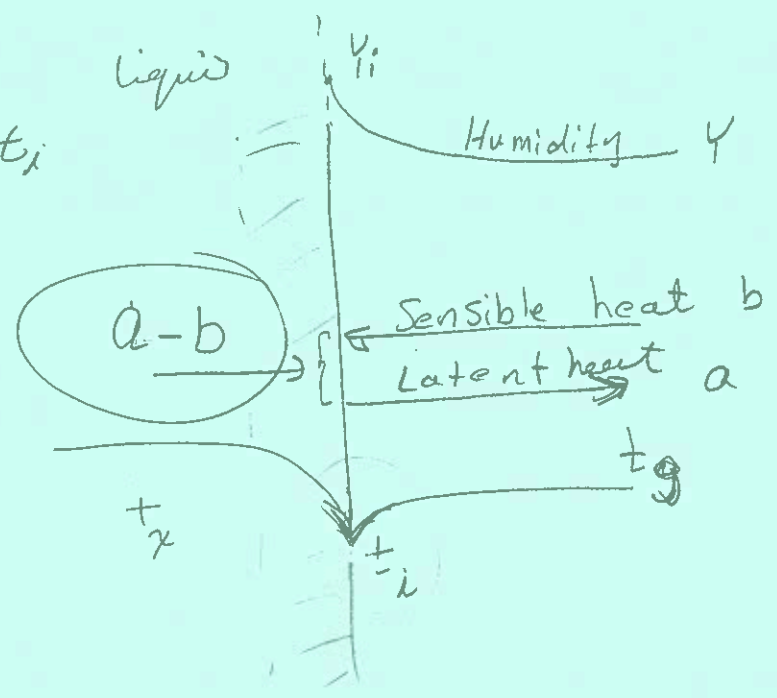 Liquid
Yi
ti
Humidity Y
Sensible heat b
a-b
Latent heat a
tg
tx
ti